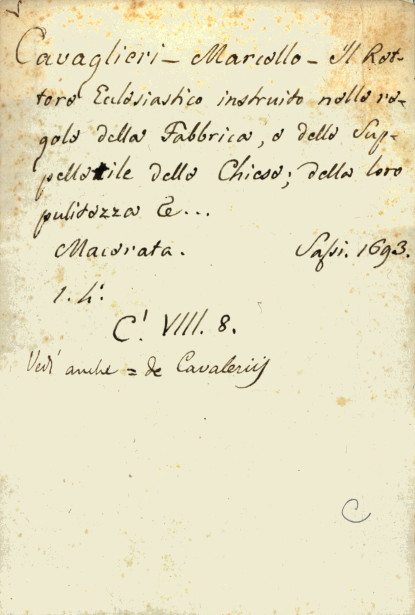 Cavaglieri – Marcello – Il Ret-
tore Eclesiastico instruito nelle re-
gole della Fabbrica, e delle Sup-
pelletile della Chiesa; della loro
pulitezza &...
Macerata. Sassi. 1693.
1. h.
C. VIII. 8.
Vedi anche = de Cavaleriis
C